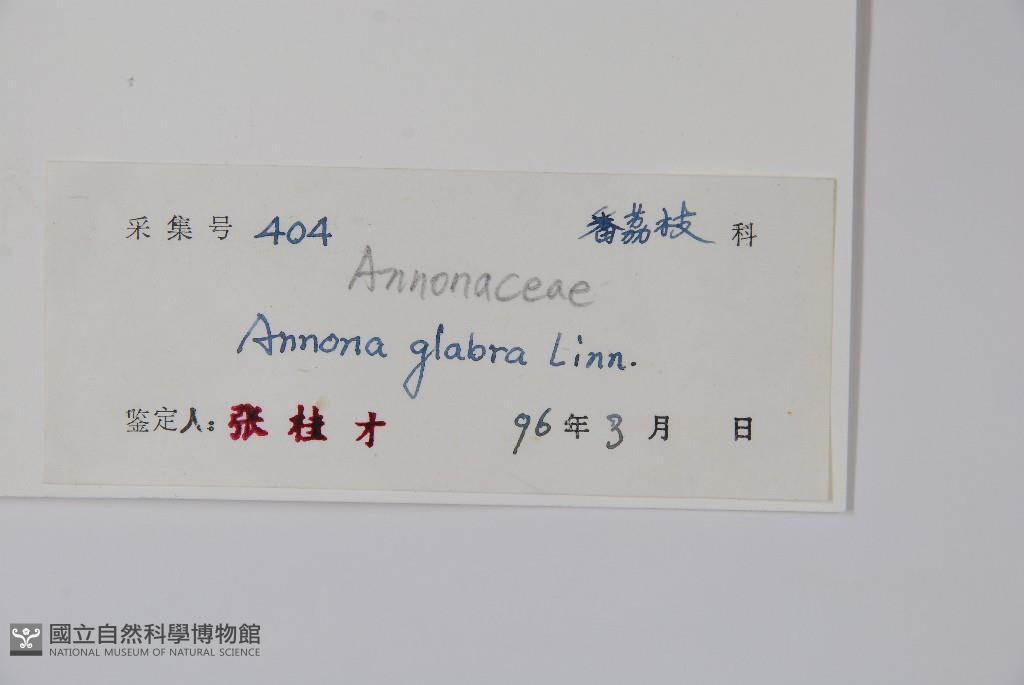 采集号 404 番荔枝 科
Annonaceae
Annona glabra Linn.
鉴定人: 张桂才 96年3月 日
國立自然科學博物館
NATIONAL MUSEUM OF NATURAL SCIENCE